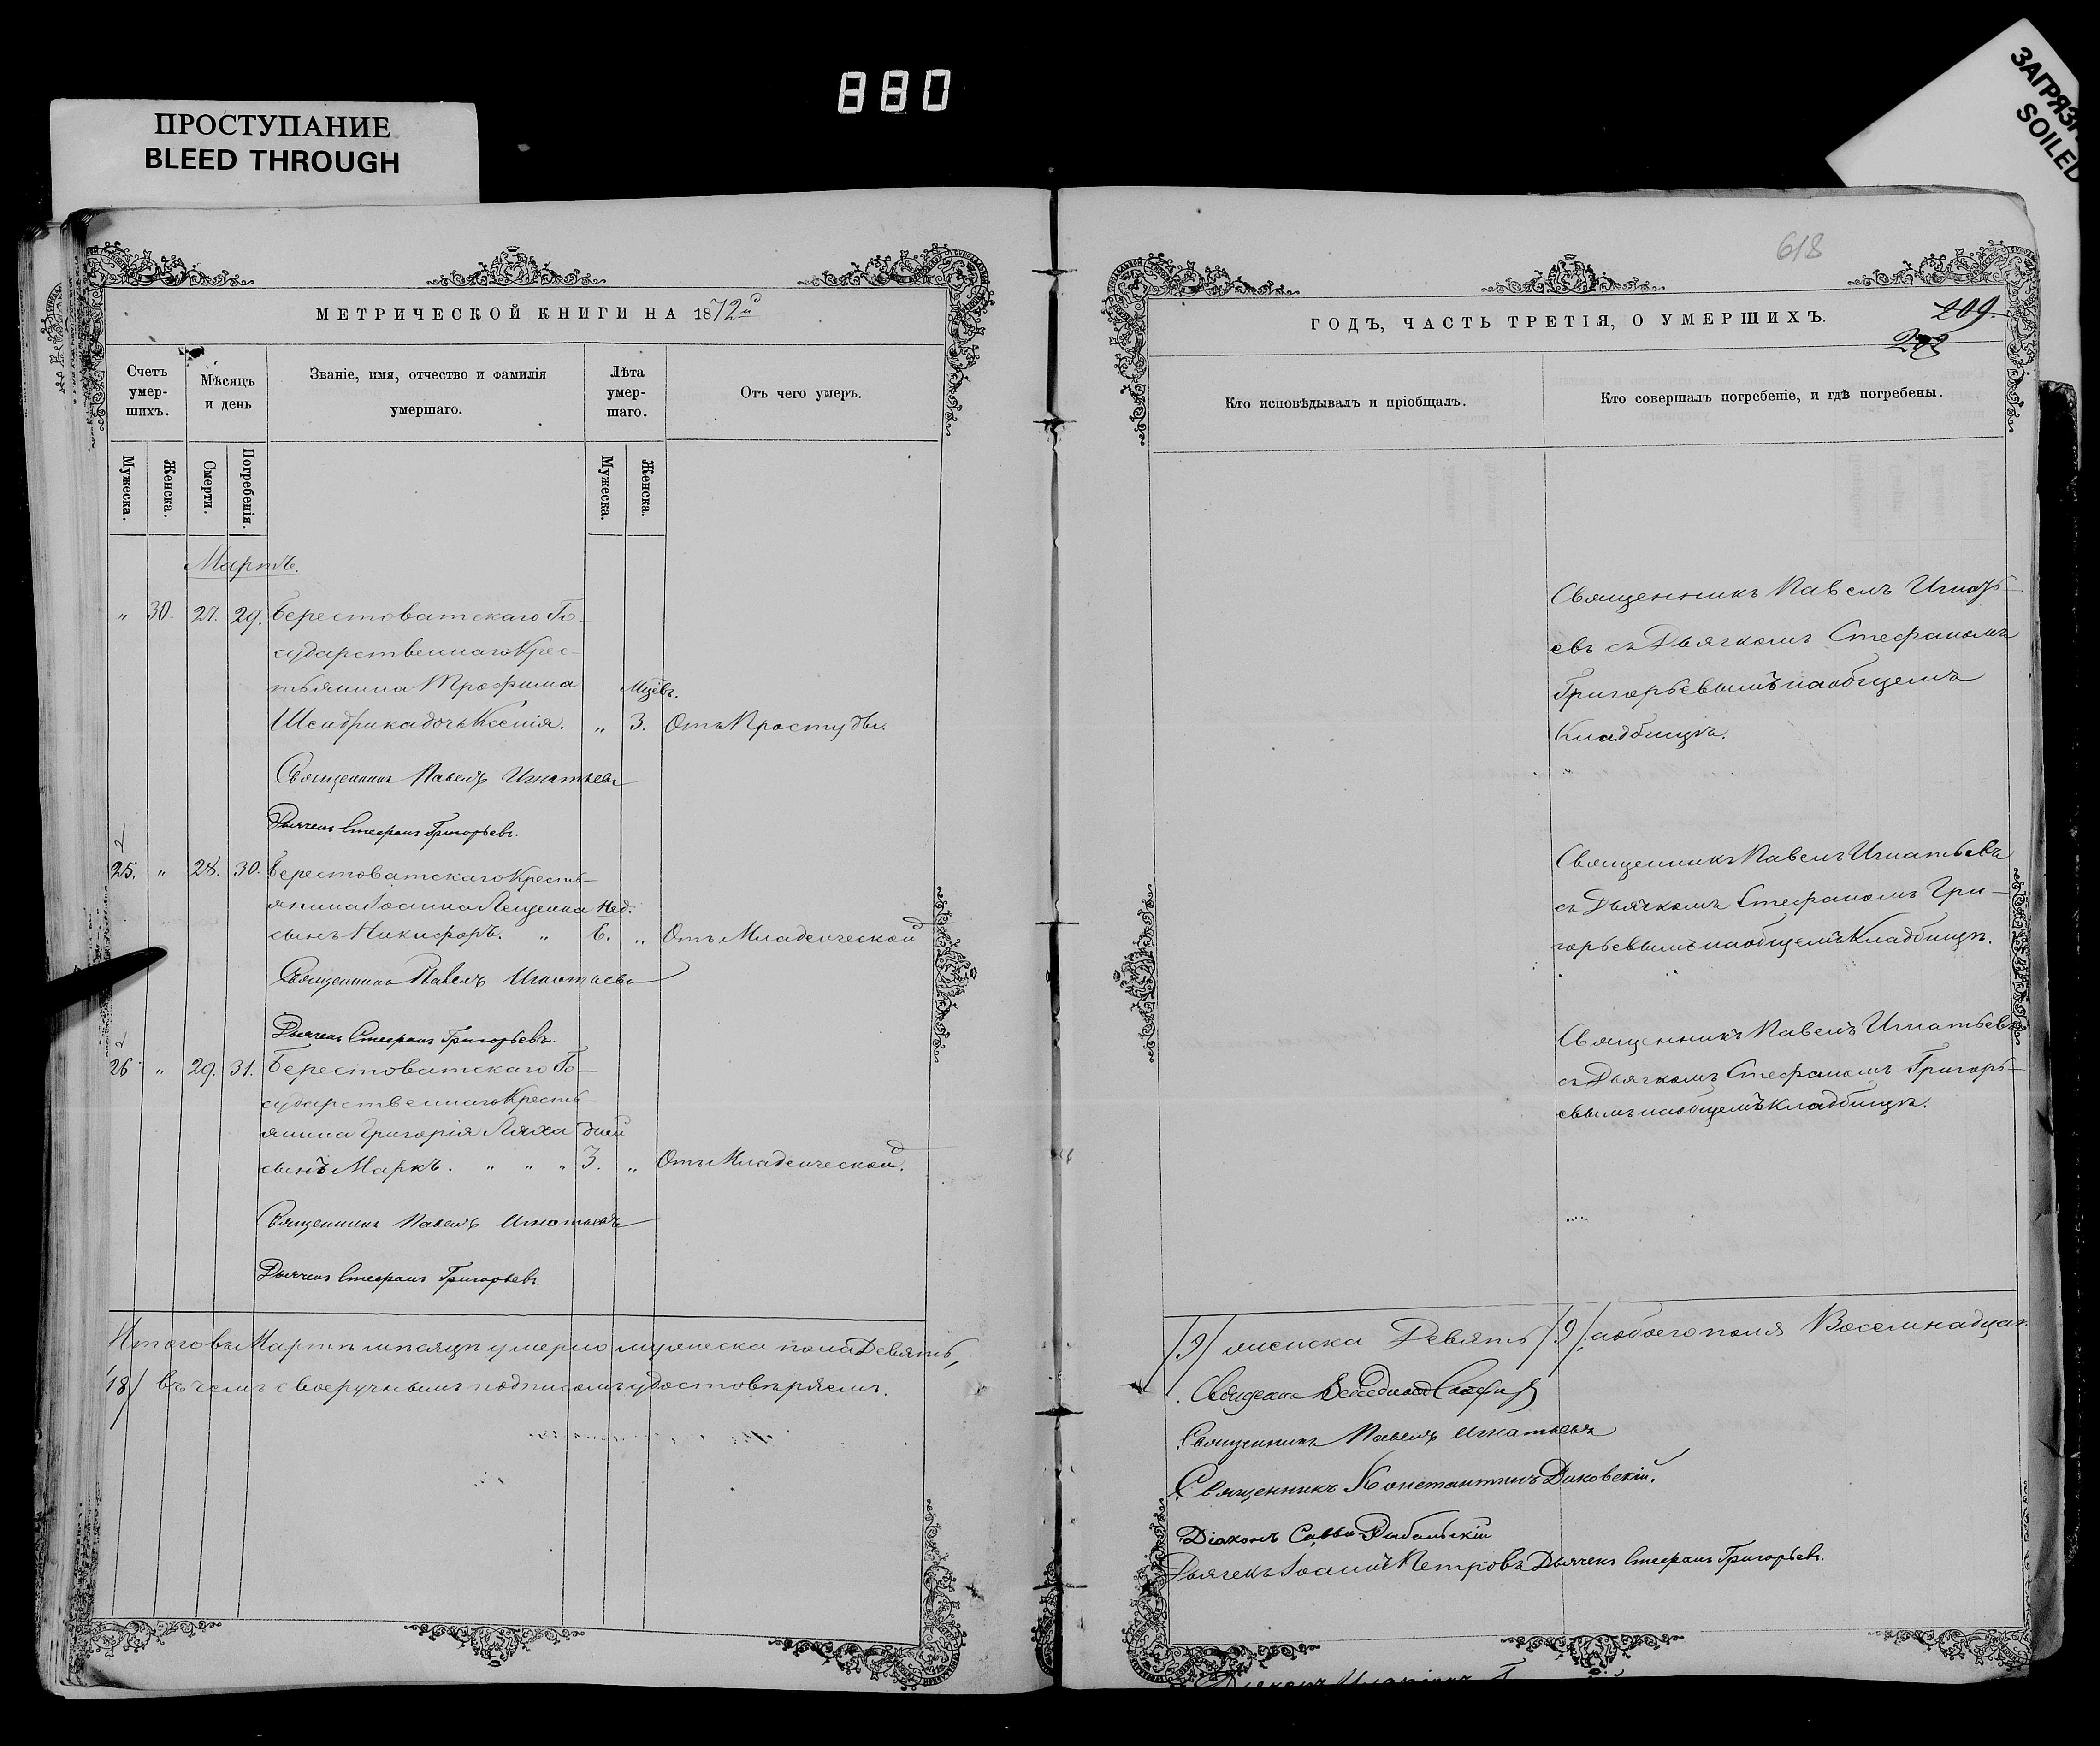 880
ПРОСТУПАНИЕ
BLEED THROUGH
ЗАГРЯЗН
SOILED
МЕТРИЧЕСКОЙ КНИГИ НА 1872й
Счетъ умер-шихъ.
Мѣсяцъ и день
Званіе, имя, отчество и фамилія умершаго.
Лѣта умер-шаго.
Отъ чего умеръ.
Мужеска.
Женска.
Смерти.
Погребенія.
Мужеска.
Женска.
Мартъ.
„ 30. 27. 29. Берестоватскаго Го-
сударственнаго Крес-
тьянина Трофима Мцевъ.
Шендрика дочь Ксенія. „ 3. Отъ Простуды.
Священникъ Павелъ Игнатьевъ
Дьячекъ Стефанъ Григорьевъ.
25. „ 28. 30. Берестоватскаго Кресть-
янина Іоанна Лещенка Нед.
сынъ Никифоръ. „ 6. „ Отъ Младенческой
Священникъ Павелъ Игнатьевъ
Дьячекъ Стефанъ Григорьевъ.
26 „ 29. 31. Берестоватскаго Го-
сударственнаго Кресть-
янина Григорія Ляха дней
сынъ Маркъ. „ „ „ 3. „ Отъ Младенческой.
Священникъ Павелъ Игнатьевъ
Дьячекъ Стефанъ Григорьевъ.
Итого въ Мартѣ мѣсяцѣ умерло мужеска пола Девять,
/18/ въ чемъ своеручнымъ подписомъ удостовѣряемъ.
618
209.
ГОДЪ, ЧАСТЬ ТРЕТІЯ, О УМЕРШИХЪ.
Кто исповѣдывалъ и пріобщалъ.
Кто совершалъ погребеніе, и гдѣ погребены.
Священникъ Павелъ Игнать-
евъ съ Дьячкомъ Стефаномъ
Григорьевымъ на общемъ
Кладбищѣ.
Священникъ Павелъ Игнатьевъ
съ Дьячкомъ Стефаномъ Гри-
горьевымъ на общемъ Кладбищѣ.
Священникъ Павелъ Игнатьевъ
съ Дьячкомъ Стефаномъ Григорь-
евымъ на общемъ кладбищѣ.
/9/ женска Девять /9/, а обоего пола Восемнадцат
Священникъ Павелъ Игнатьевъ
Священникъ Константинъ Диковскій.
Діаконъ Савва
Дьячекъ Іоаннъ Петровъ Дьячекъ Стефанъ Григорьевъ.